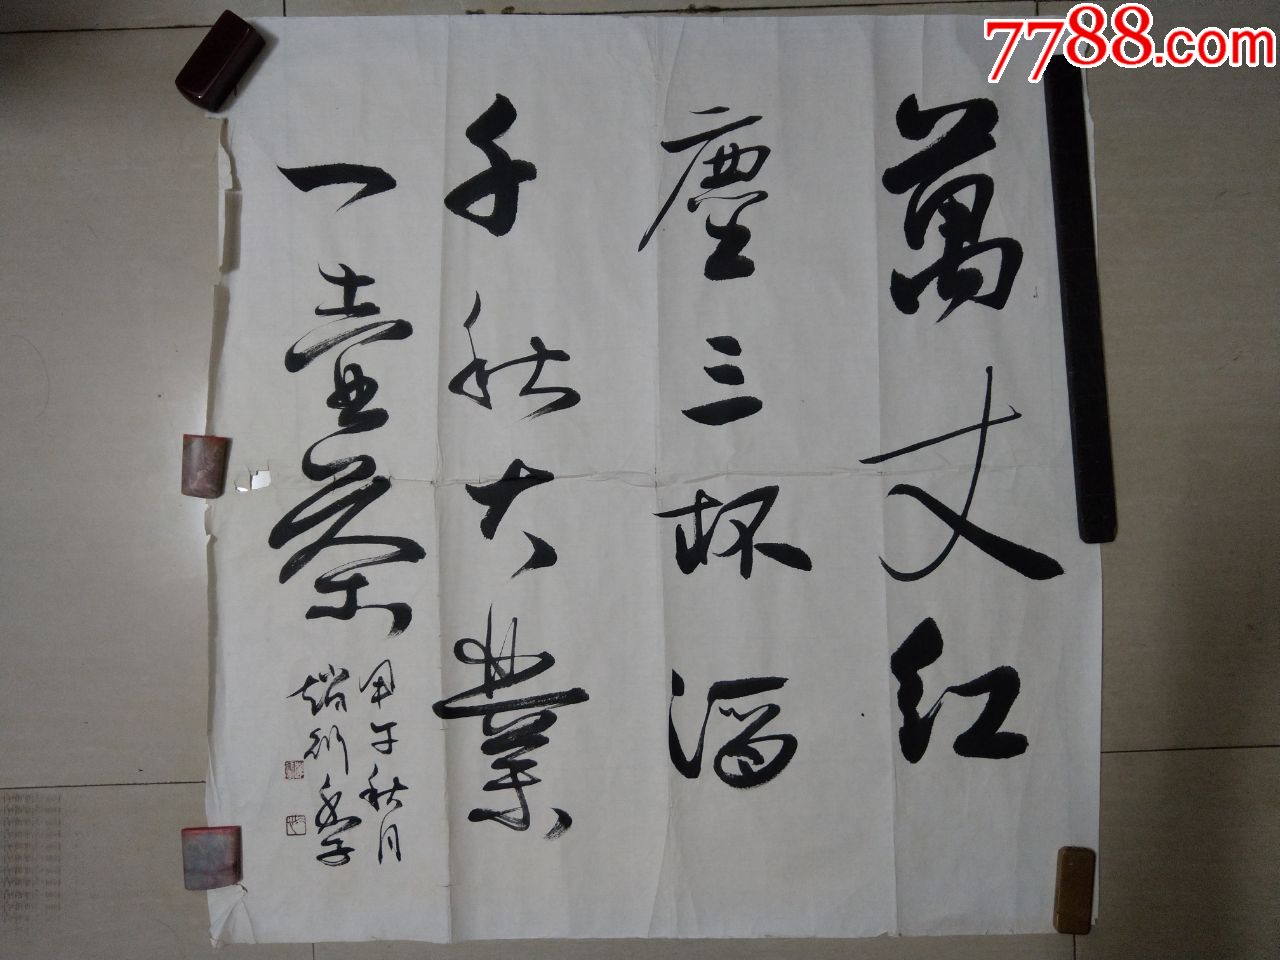 7788.com
萬丈红
塵三杯酒
千秋大業
一壺茶
甲午秋月